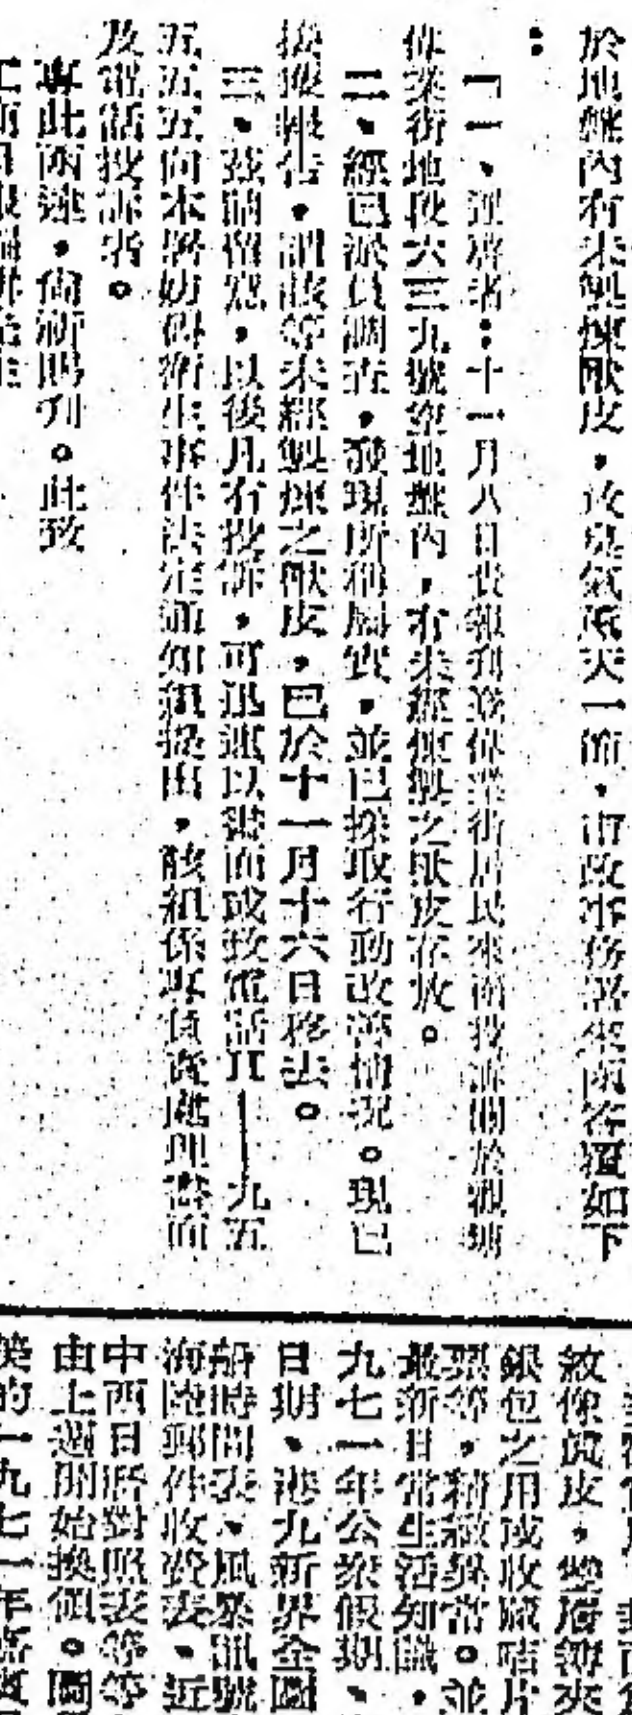 於地盤內有未製煉獸皮，放臭氣薰天一節，市政事務署來函答覆如下
：
「一、逕啓者：十一月八日貴報刊登偉業街居民來函投訴關於觀塘
偉業街地段六三九號空地盤內，有未經煉製之獸皮存放。
二、經已派員調查，發現所稱屬實，並已採取行動改善情況。現已
接獲報告，謂該等未經製煉之獸皮，已於十一月十六日移去。
三、茲請留意，以後凡有投訴，可迅速以書面或致電話H—九五
五五五向本署妨碍衛生事件法定通知組提出，該組係專負責處理書面
及電話投訴者。
專此函達，尚祈賜刊。此致
工商日報編輯先生
紋像真皮，雙層薄夾
銀包之用或收藏咭片
票等，精緻異常。並
最新日常生活知識，
九七一年公衆假期、
日期、港九新界全圖
船時間表、風暴訊號
海陸郵件收費表、近
中西日曆對照表等等
由上週開始換領。圖
美的一九七一年